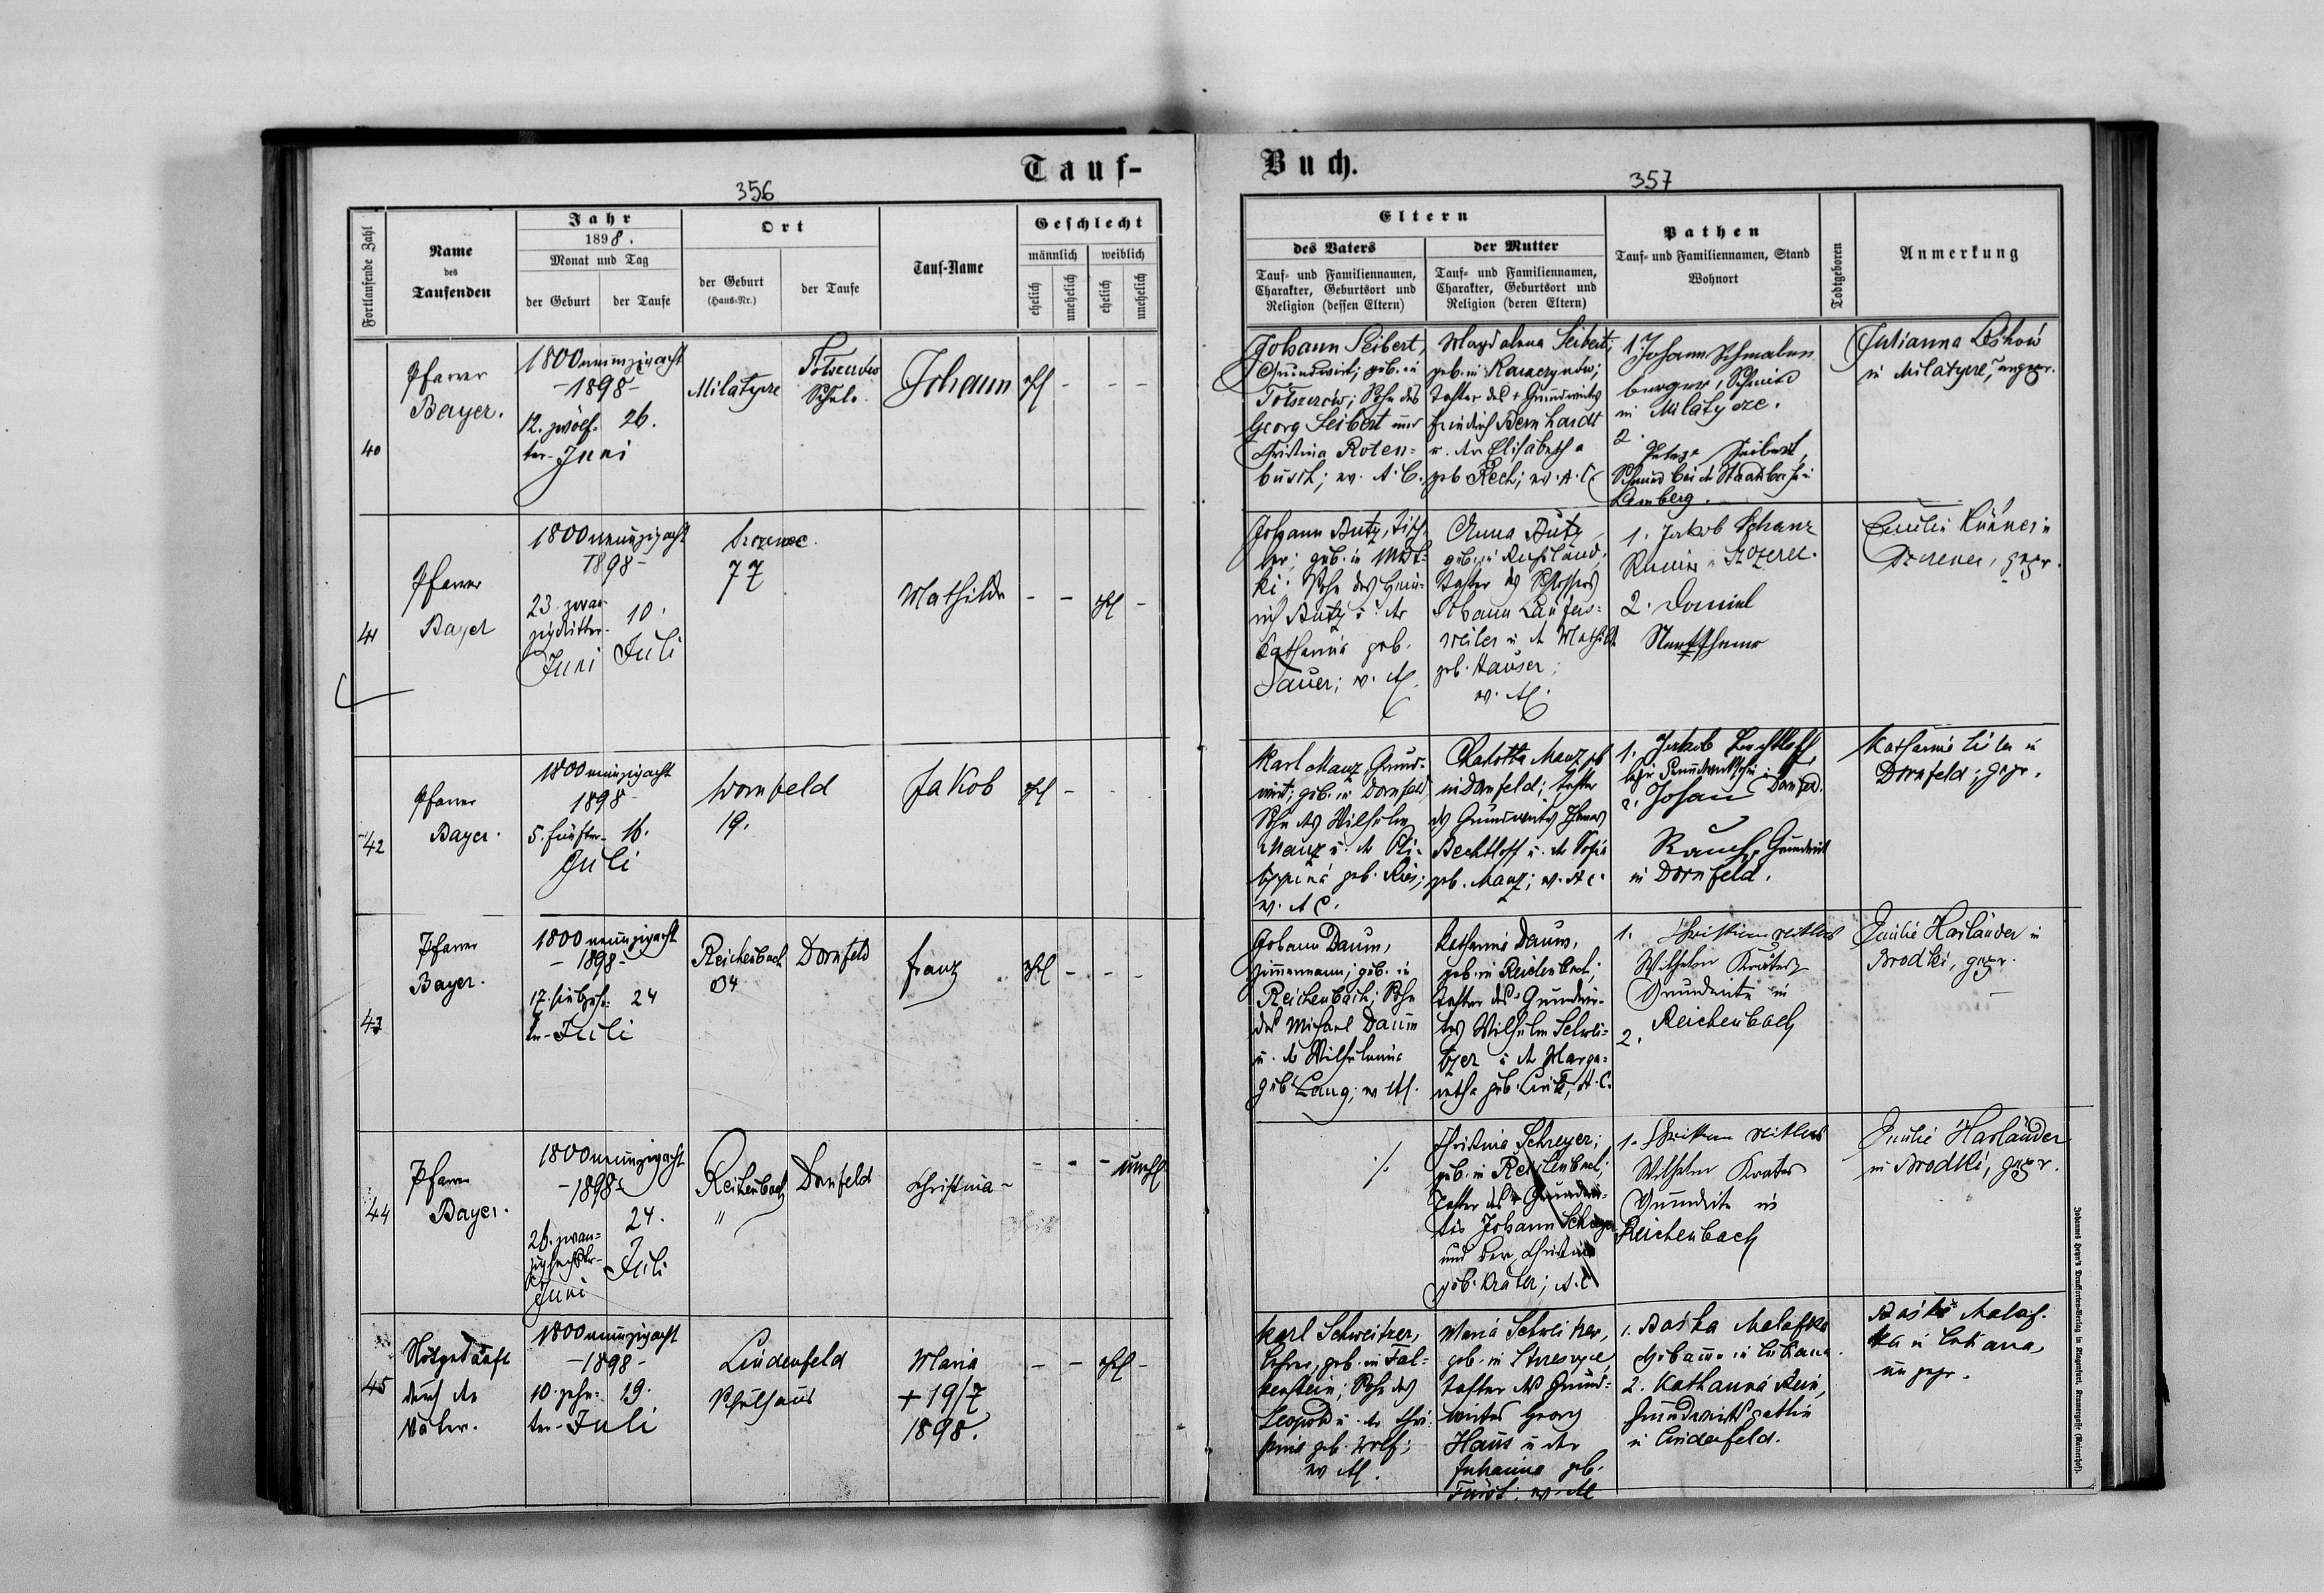 Tauf-
356
Fortlaufende Zahl
Name
des
Taufenden
Jahr
1898.
Monat und Tag
der Geburt
der Taufe
Ort
der Geburt
(Haus-Nr.)
der Taufe
Tauf-Name
Geschlecht
männlich
weiblich
ehelich
unehelich
ehelich
unehelich
40
Pfarrer
Bayer.
1800neunzigacht
-1898-
12. zwölf-
ter-Juni
26.
Milatycze
Schule
Johann
ehl
-
-
-
41
Pfarrer
Bayer
1800neunzigacht
1898-
23. zwan-
zigdritter-
Juni
10.
Juli
77
Mathilde
-
-
ehl
-
42
Pfarrer
Bayer.
1800neunzigacht
1898-
5. fünfter-
Juli
16.
Dornfeld
19.
Jakob
ehl
-
-
-
43
Pfarrer
Bayer.
1800neunzigacht
-1898-
17. siebzehn-
ter-Juli
24
Reichenbach
Dornfeld
Franz
ehl
-
-
-
44
Pfarrer
Bayer.
1800neunzigacht
-1898-
26. zwan-
zigsechster-
Juni
24.
Juli
Reichenbach
"
Dornfeld
Christina-
-
-
-
unehl
45
Nothgetauft
durch den
Vater.
1800neunzigacht
-1898-
10. zehn-
ter-Juli
19.
Lindenfeld
Schulhaus
Maria
+ 19/7
1898.
-
-
ehl
-
Buch.
357
Eltern
des Vaters
Tauf- und Familiennamen,
Charakter, Geburtsort und
Religion (dessen Eltern)
der Mutter
Tauf- und Familiennamen,
Charakter, Geburtsort und
Religion (deren Eltern)
Pathen
Tauf- und Familiennamen, Stand
Wohnort
Todtgeboren
Anmerkung
Johann Seibert,
Grundwirt; geb. in
Sohn des
Georg Seibert und
Christina Roten-
busch; ev. A. C.
Magdalena Seibert,
geb. in
Tochter des + Grundwirtes
Friedrich Bernhardt
u. der Elisabetha
geb Rech; ev. A. C.
1. Johann Schmalen
berger, Schmied
in Milatycze.
2.
Seibert,
Schmied bei der Staatsbahn in
Lemberg.
Julianna
in Milatycze, ungepr.
Johann Butz, Tisch-
ler; geb. in
Sohn des Hein-
rich Butz u. der
Katharina geb.
Sauer; ev. AC.
Anna Butz,
geb. in Russland;
Tochter des Schlossers
Johann Laufers-
weiler u. der Mathilde
geb. Hauser;
ev. AC.
1. Jakob Schanz
2. Daniel
Emilie
gepr.
Karl Manz, Grund-
wirt; geb. in Dornfeld,
Sohn des Wilhelm
Manz u. der Phi-
lippina geb. Ries;
ev. A C.
Charlotte Manz geb
in Dornfeld; Tochter
des Grundwirtes
Bechtloff u. der Sofia
geb. Manz; ev. A C.
1. Jakob Bechtloff,
Dornfeld.
2. Johann
Rauch, Grundwirt
in Dornfeld.
Katharina
in
Dornfeld; gepr.
Johann Daum,
Zimmermann; geb. in
Reichenbach; Sohn
des Michael Daum
u. der Wilhelmine
geb Lang; ev AC.
Katharina Daum,
geb. in Reichenbach;
Tochter des Grundwir-
tes Wilhelm Schwei-
tzer u. der Marga-
retha geb. A. C.
1. Christian
Wilhelm Krater
Grundwirte in
Reichenbach
2.
Emilie Harländer in
Brodki, gepr.
-
./.
Christina Schreyer;
geb. in Reichenbach;
Tochter des Grundwir-
tes Johann Schreyer
und der Christina
geb. Krater; A. C.
1. Christian
Wilhelm Krater
Grundwirte in
Reichenbach
Emilie Harländer
in Brodki, gepr.
Karl Schweitzer,
Lehrer, geb. in Fal-
kenstein; Sohn des
Leopold u. der Chri-
stine geb. Wolf;
ev AC.
Maria Schweitzer,
geb. in
Tochter des Grund-
wirtes Georg
Haus u der
Johanna geb.
ev. AC
1. Baska
Hebamme in
2. Katharina
Grundwirtsgattin
in Lindenfeld.
Baska
in
ungepr.
Johannes Heyn's Drucksorten-Verlag in Klagenfurt, Kramergasse (Rainerhof).